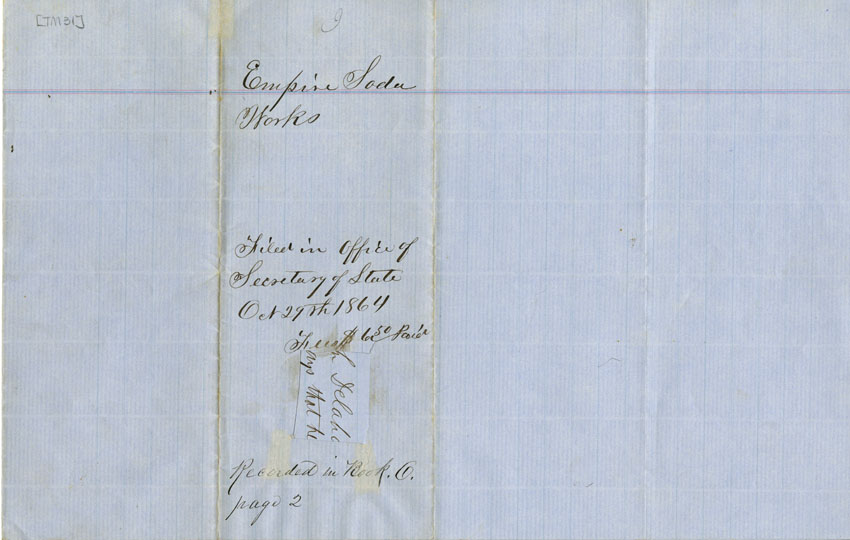 [TM31]
Empire Soda
Works
Filed in Office of
Secretary of State
Oct 29th 1864
Fees $6.50 Paid
says that he
Recorded in Book. O.
page 2